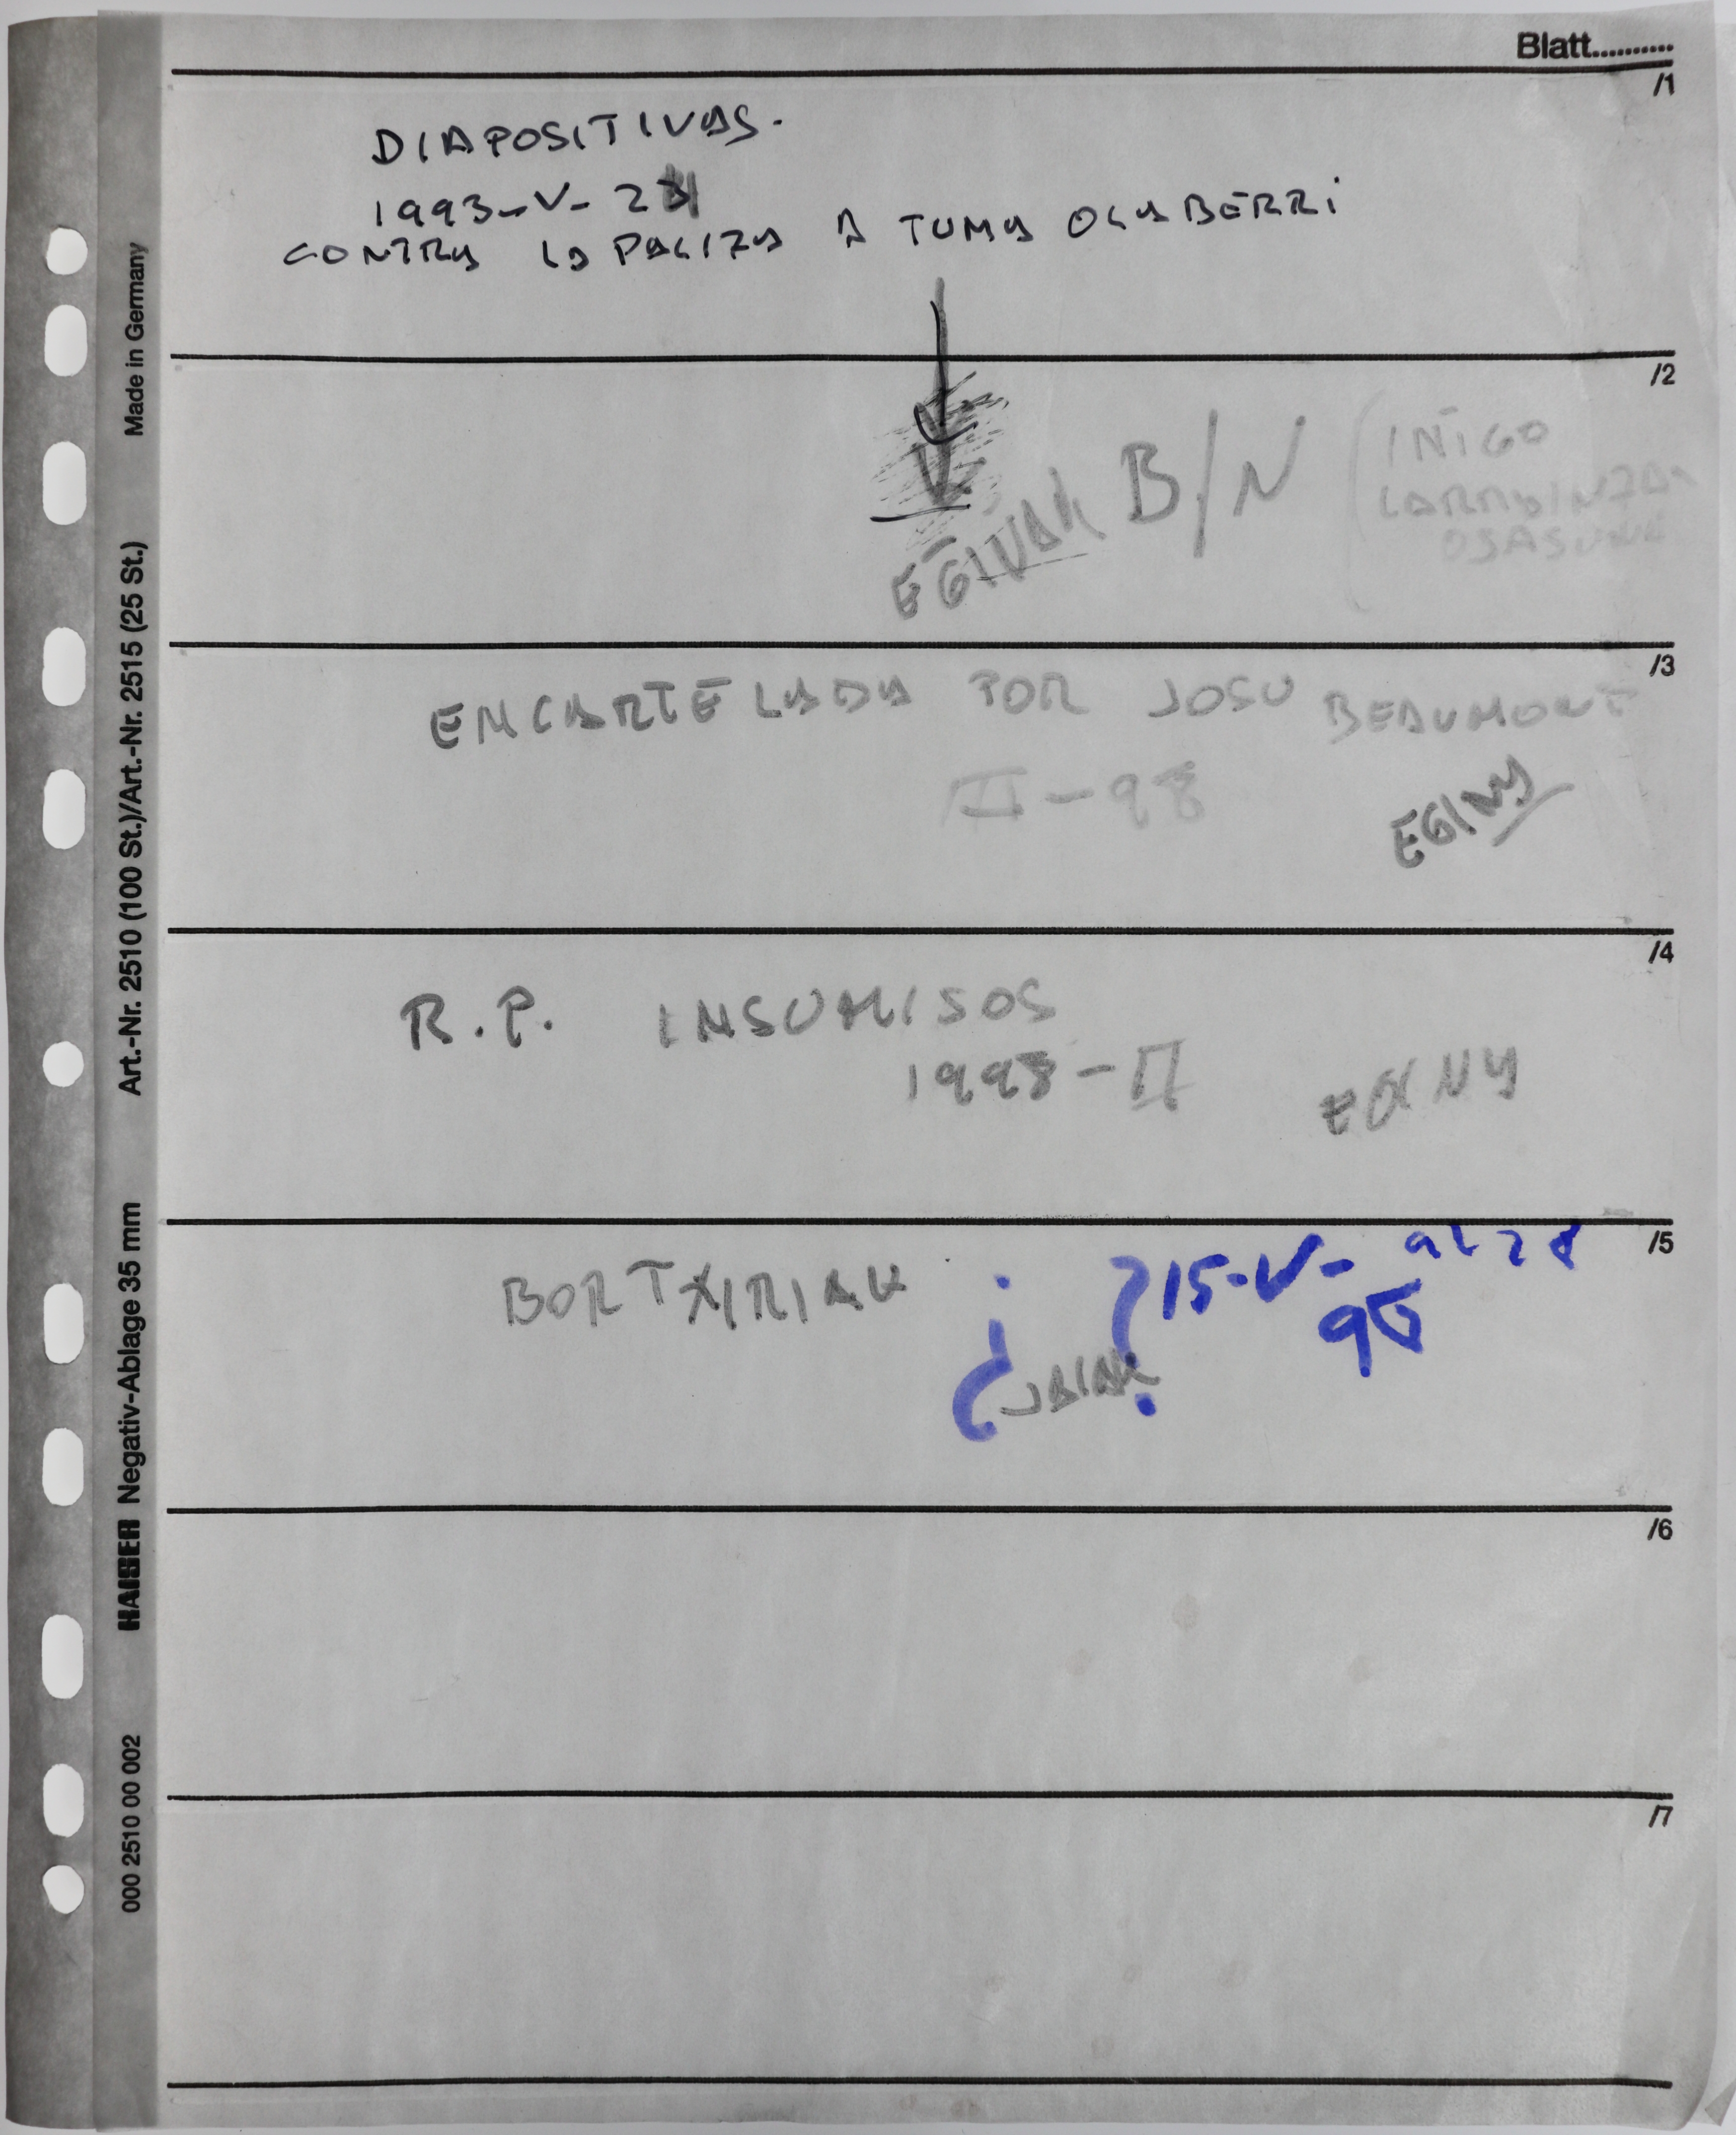 Blatt..........
/1
DIAPOSITIVAS.
1993-V-2
CONTRA LA PALIZA A TUMA OLABERRI
/2
EGINAK B/N
(IÑIGO
OSASUNA
/3
ENCARTELADA POR JOSU BEAUMONT
II-98
EGINA
/4
R.P. INSUMISOS
1998-II
/5
BORTXIRIAK
¿JAIAK?
15-V-
95
al 28
/6
/7
Made in Germany
Art.-Nr. 2510 (100 St.)/Art.-Nr. 2515 (25 St.)
KAISER Negativ-Ablage 35 mm
000 2510 00 002